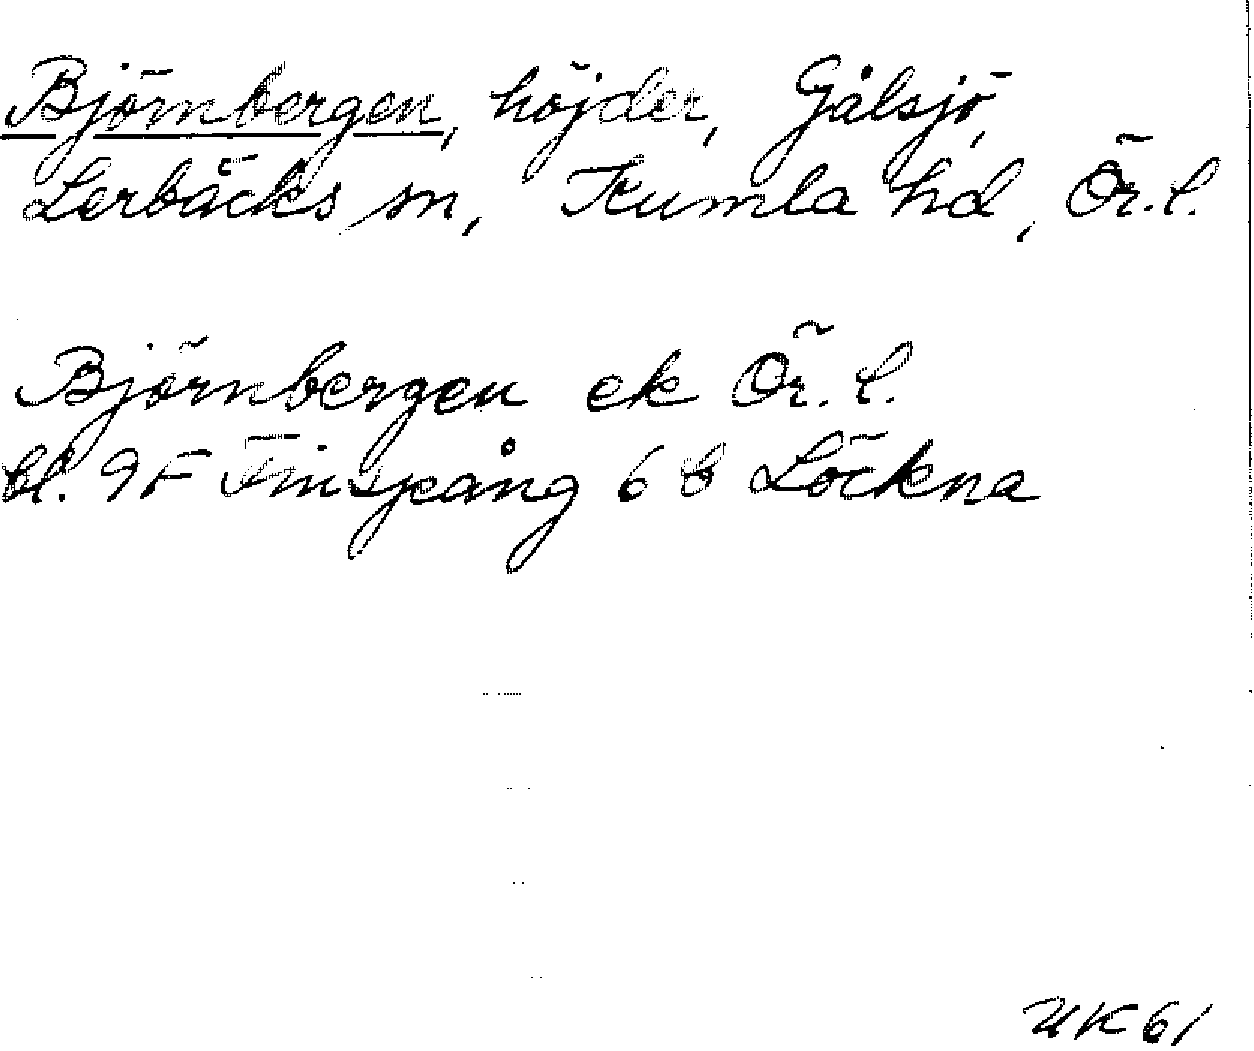 Björnbergen, höjder, Gålsjö,
Lerbäcks sn, Kumla hd, Ör. l.
Björnbergen ek Ör. l.
bl. 9F Finspång 6 b Löckna
UK 61